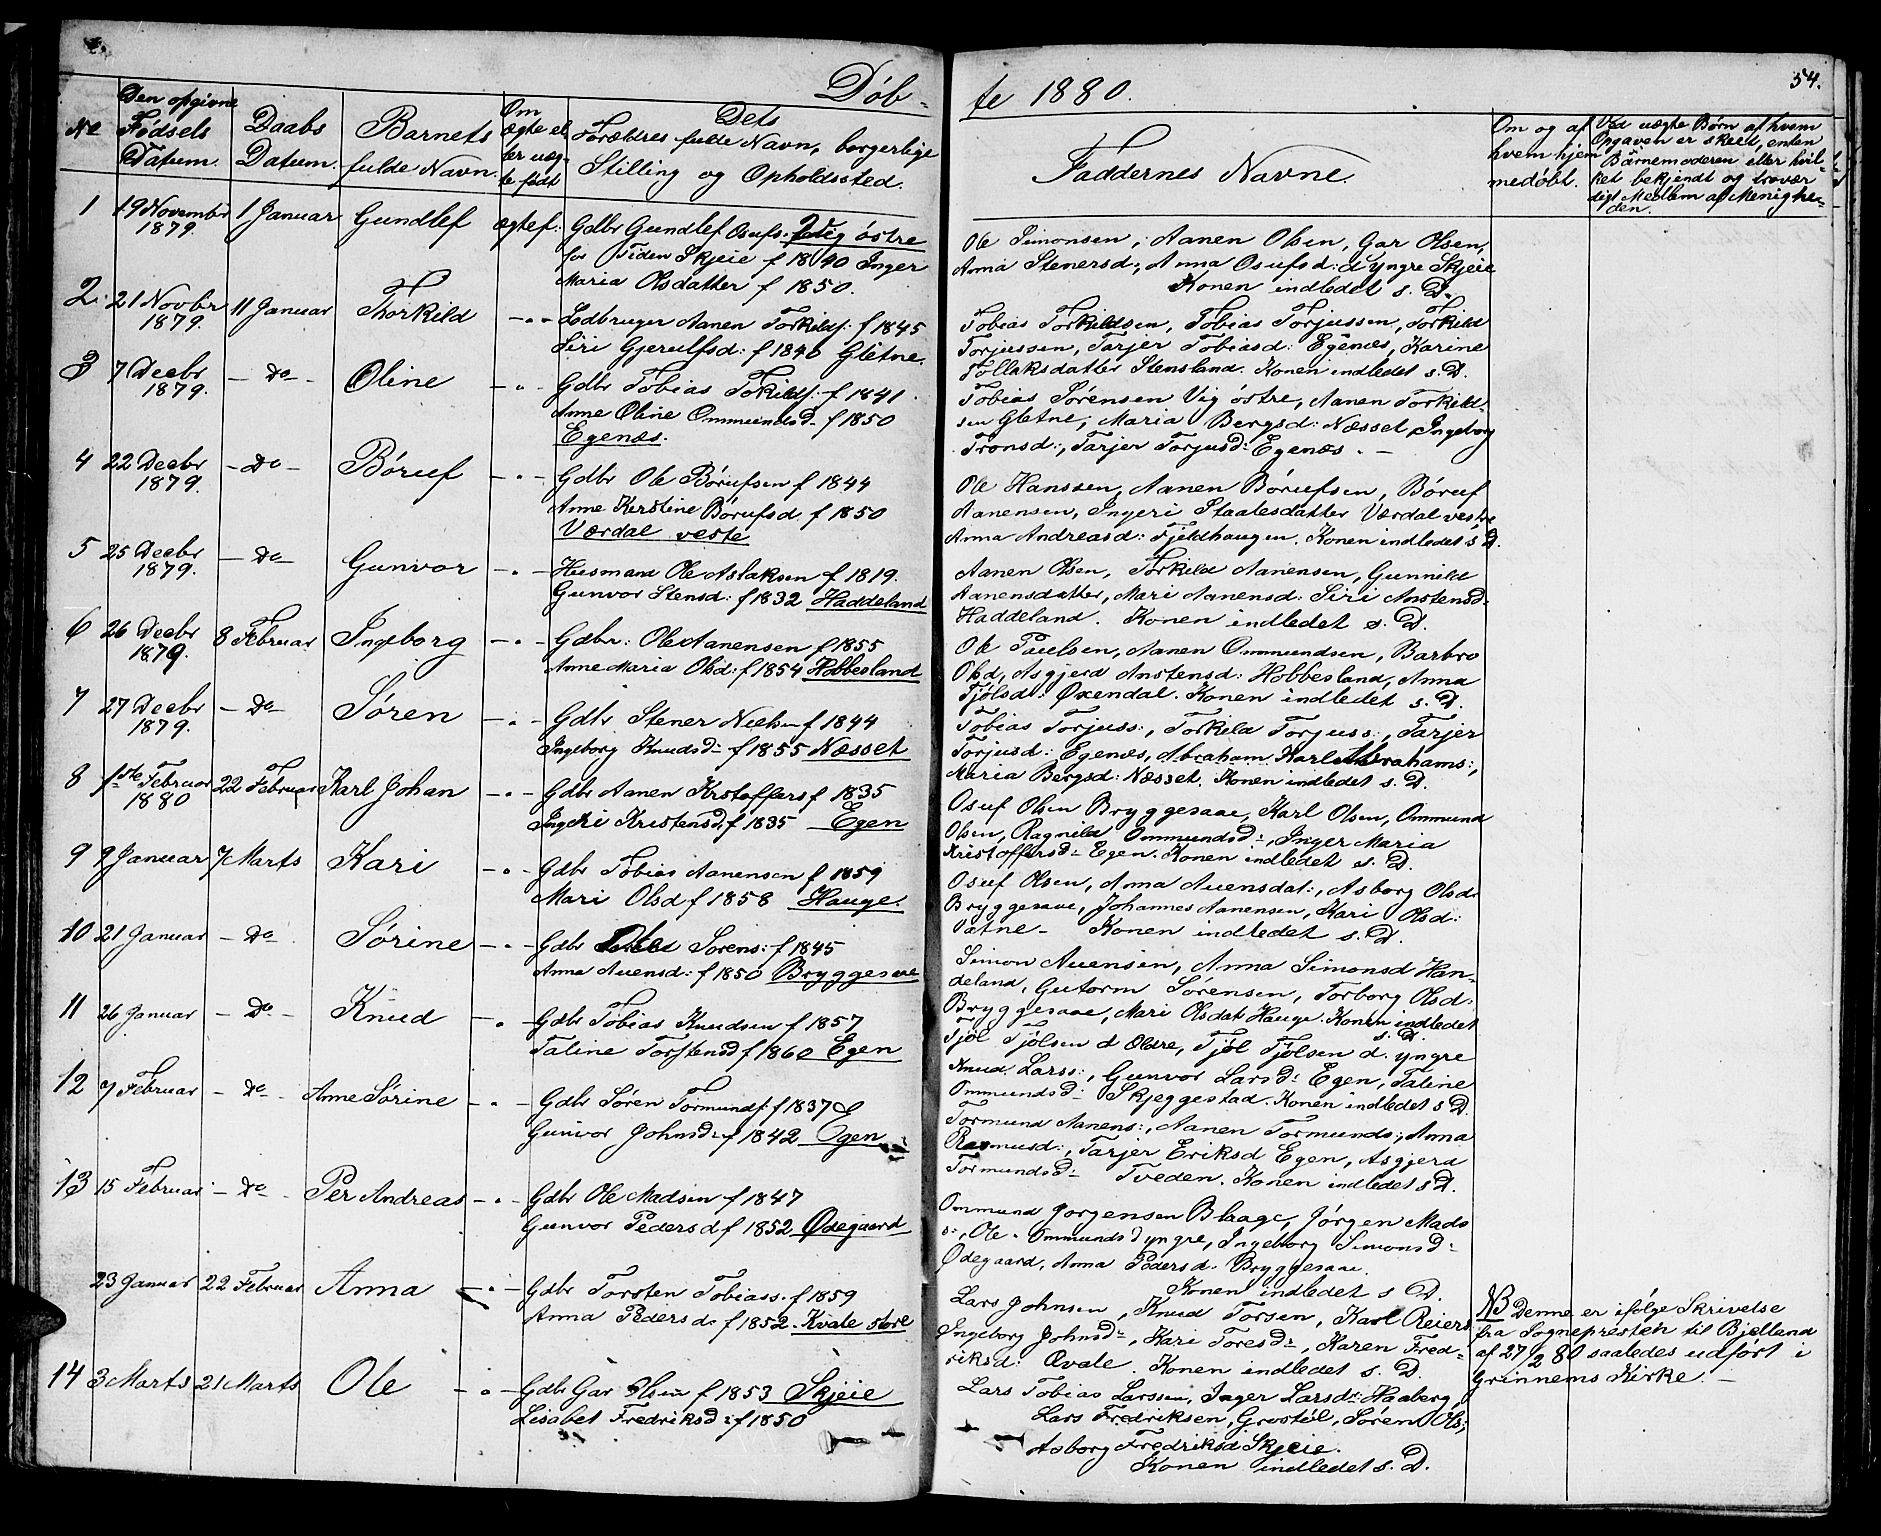 Döb-
te 1880.
54.
No
Den opgivne
Fødsels
Datum.
Daabs
Datum.
Barnets
fulde Navn.
Om
ægte el-
ler uæg-
te født
Dets
Forældres fulde Navn, borgerlige
Stilling og Opholdssted.
Faddernes Navne.
Om og af
hvem hjem
medöbt.
Ved uægte Børn af hvem
Opgaven er skeet, enten
Barnemoderen eller hvil-
ket bekjendt og trovær-
digt Medlem af Menighe-
den.
1 19 November 1 Januar Gundlef ægtef: Gdbr Gundlef Osufs. Vig östre
1879. for Tiden Skjeie f 1840 Inger
Maria Olsdatter f 1850.
Ole Simonsen, Aanen Olsen, Gar Olsen,
Anna Stenersd:, Anna Osufsd: d yngre Skjeie
Konen indledet s. D.
2. 21 Novbr 11 Januar Thorkild -"- Ledbruger Aanen Torkilds: f 1845
1879. Siri Gjerulfsd: f 1840 Gletne.
Tobias Torkildsen, Tobias Torjussen, Torkild
Torjussen, Tarjer Tobiasd: Egenæs, Karine
Tollaksdatter Stensland. Konen indledet s. D.
3 7 Decbr - Do - Oline -"- Gdbr Tobias Tokilds: f 1841.
1879. Anne Oline Ommundsd. f 1850
Egenæs.
Tobias Sørensen Vig östre, Aanen Torkild-
sen Gletne, Maria Bergsd: Næsset, Ingeborg
Tronsd:, Tarjer Torjusd: Egenæs. -
4 22 Decbr - Do - Böruf -"- Gdbr Ole Börufsen f 1844
1879. Anne Kerstine Börufsd f 1850
Værdal veste
Ole Hanssen, Aanen Börufsen, Böruf
Aanensen, Ingeri Staalesdatter Værdal vestre
Anna Andreasd: Fjeldhaugen. Konen indledet s D.
5 25 Decbr - Do - Gunvor -"- Husmand Ole Aslaksen f 1819.
1879. Gunvor Stensd: f 1832 Haddeland
Aanen Olsen, Torkild Aanensen, Gunnild
Aanensdatter, Mari Aanensd: Siri Anstensd:
Haddeland. Konen indledet s. D.
6 26 Decbr 8 Februar Ingeborg -"- Gdbr: Ole Aanensen f 1855
1879. Anne Maria Olsd: f 1854 Hobbesland
Ole Paulsen, Aanen Ommundsen, Barbro
Olsd, Asgjerd Anstensd: Hobbesland, Anna
Tjölsd: Øxendal. Konen indledet s. D.
7 27 Decbr - Do - Søren -"- Gdbr Stener Nielsen f 1844
1879. Ingeborg Knudsd: f 1855 Næsset
Tobias Torjuss:, Torkild Torjuss:, Tarjer
Torjusd: Egenæs, Abraham Karl Abrahams:,
Maria Bergsd: Næsset. Konen indledet s. D.
8 1ste Februar 22 Februar Karl Johan -"- Gdbr Aanen Krstoffers f 1835
1880 Ingeri Kristensd: f 1835 Egen
Osuf Olsen Bryggesaae, Karl Olsen, Ommund
Olsen, Ragnild Ommundsd:, Inger Maria
Kristoffersd: Egen. Konen indledet s. D.
9 9 Januar 7 Marts Kari -"- Gdbr Tobias Aanensen f 1859
Mari Olsd f 1858 Hauge.
Osuf Olsen, Anna Auensdat:, Asborg Olsd:
Bryggesaae, Johannes Aanensen, Kari Olsd:
Vatne - Konen indledet s. D.
10 21 Januar - Do - Sørine -"- Gdbr Ole Sørens: f 1845
Anna Auensd: f 1850 Bryggesaae
Simon Auensen, Anna Simonsd Han-
deland, Gutorm Sørensen, Torborg Olsd:
Bryggesaae, Mari Olsdat: Hauge. Konen indledet
s. D.
11 26 Januar - Do - Knud -"- Gdbr Tobias Knudsen f 1857
Taline Torstensd f 1860 Egen
Tjöl Tjölsen d Øldre, Tjöl Tjölsen d. yngre
Knud Larss:, Gunvor Larsd: Egen, Taline
Ommundsd: Skjeggestad. Konen indledet s D.
12 7 Februar - Do - Anne Sörine -"- Gdbr Søren Tormunds: f 1837
Gunvor Johnsd: f 1842 Egen
Tormund Aanens:, Aanen Tormunds:, Anna
Rasmusd:, Tarjer Eriksd Egen, Asgjerd
Tormundsd: Tveden. Konen indledet s D.
13 15 Februar - Do - Per Andreas -"- Gdbr Ole Madsen f 1847
Gunvor Pedersd f 1852 Ødegaard
Ommund Jorgensen Blaage, Jörgen Mads
s:, Ole Ommunds d yngre, Ingeborg Simonsd:
Ødegaard, Anna Pedersd. Bryggesaae.
Konen indledet s D.
23 Januar 22 Februar Anna -"- Gdbr Torsten Tobiass. f 1859
Anna Pedersd: f 1852. Kvale store
Lars Johnsen, Knud Torsen, Karl Reiers
Ingeborg Johnsd:, Kari Toresd:, Karen Fred-
riksd: Qvale. Konen indledet s. D.
NB Denne er ifølge Skrivelse
fra Sognepresten til Bjelland
af 27/2 80 saaledes udført i
Grinnems Kirke. -
14 3 Marts 21 Marts Ole -"- Gdbr Gar Olsen f 1853 Skjeie
Lisabet Fredriksd: f 1850
Lars Tobias Larssen, Inger Larsdr: Haaberg,
Lars Fredriksen, Grostöl, Søren Ols:,
Asborg Fredriksd Skjeie.
Konen indledet s. D.